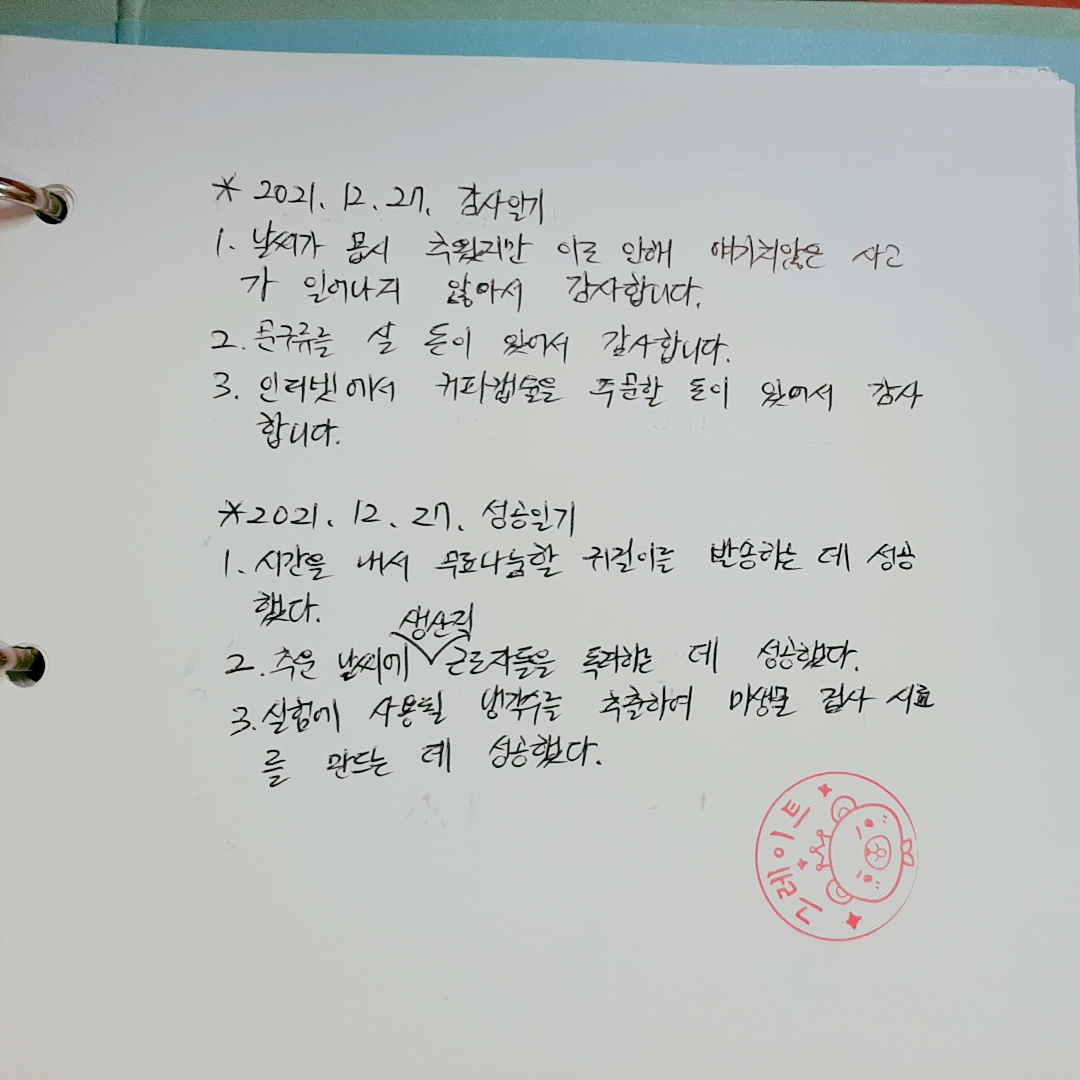 * 2021. 12. 27. 감사일기
1. 날씨가 몹시 추웠지만 이로 인해 얘기치않은 사고
가 일어나지 않아서 감사합니다.
2. 문구류를 살 돈이 있어서 감사합니다.
3. 인터넷에서 커피캡슐을 주문할 돈이 있어서 감사
합니다.
*2021. 12. 27. 성공일기
1. 시간을 내서 무료나눔할 귀걸이를 발송하는 데 성공
했다.
생산직
2. 추운 날씨에 ∨ 근로자들을 독려하는 데 성공했다.
3. 실험에 사용될 냉각수를 추출하여 미생물 검사 시료
를 만드는 데 성공했다.
그레이트